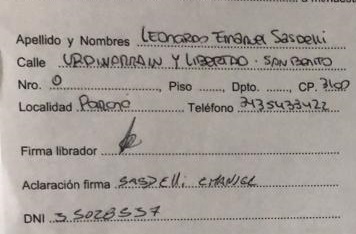 Apellido y Nombres LEONARDO Emanuel Sasdelli
Calle URDINARRAIN Y LIBERTAD. SAN BENITO
Nro. 0 , Piso , Dpto. , CP. 3100
Localidad Paraná Teléfono 3435433422
Firma librador
Aclaración firma SASDELLI EMANUEL
DNI 35028537